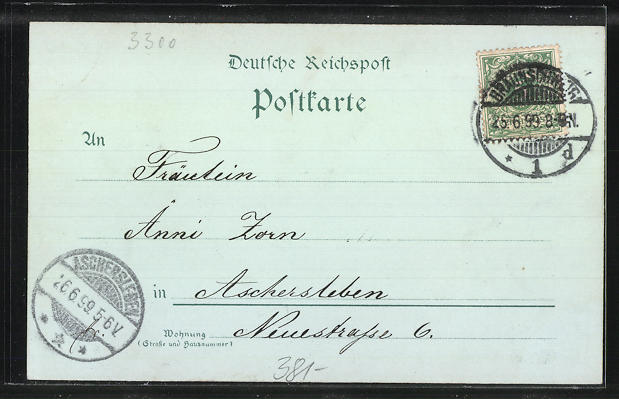 3300
Deutsche Reichspost
Postkarte
An
BRAUNSCHWEIG
25.6.99.8-9N.
* 1 p
Fräulein
Änni Zorn
in Aschersleben
Wohnung Neuestraße 6.
(Straße und Hausnummer)
ASCHERSLEBEN
26.6.99.5-6V.
381-